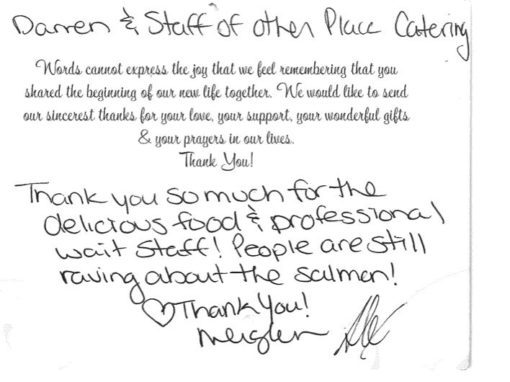 Darren & Staff of other Place Catering
Words cannot express the joy that we feel remembering that you
shared the beginning of our new life together. We would like to send
our sincerest thanks for your love, your support, your wonderful gifts
& your prayers in our lives.
Thank You!
Thank you so much for the
delicious food & professional
wait staff! People are still
raving about the salmon!
♡Thank You!